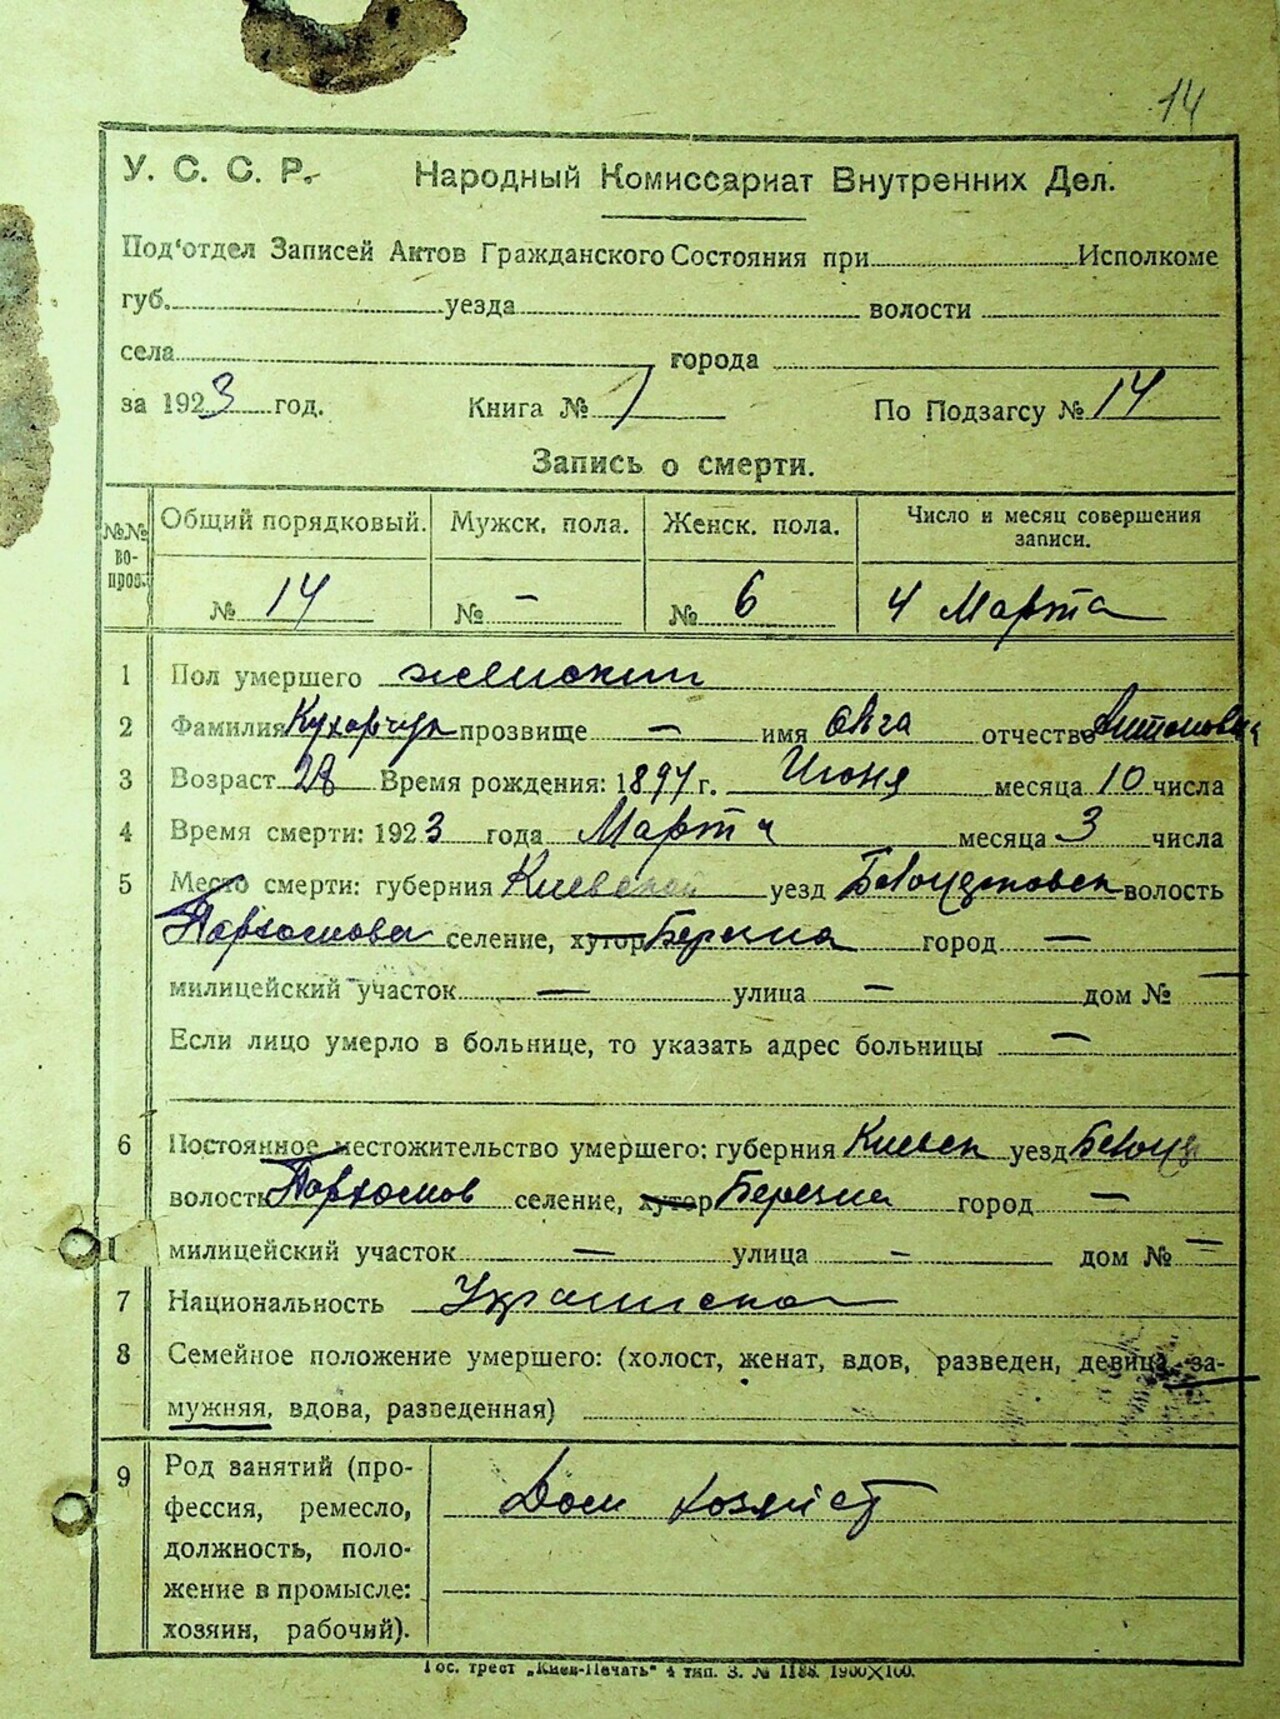 14
У. С. С. Р. Народный Комиссариат Внутренних Дел.
Под'отдел Записей Актов Гражданского Состояния при Исполкоме
губ. уезда волости
села города
за 1923 год. Книга № 1 По Подзагсу № 14
Запись о смерти.
№№ вопрос. Общий порядковый. Мужск. пола. Женск. пола. Число и месяц совершения записи.
№ 14 № — № 6 4 Марта
1 Пол умершего женский
2 Фамилия Кухарчук прозвище — имя Ольга отчество Антоновна
3 Возраст 28 Время рождения: 1897 г. Июня месяца 10 числа
4 Время смерти: 1923 года Марта месяца 3 числа
5 Место смерти: губерния Киевской уезд Белоцерковск волость
Пархомовка селение, хутор Березна город —
милицейский участок — улица — дом № —
Если лицо умерло в больнице, то указать адрес больницы —
6 Постоянное местожительство умершего: губерния Киевск уезд Белоц
волость Пархомов селение, хутор Березна город —
милицейский участок — улица — дом № —
7 Национальность Украинска
8 Семейное положение умершего: (холост, женат, вдов, разведен, девица, за-
мужняя, вдова, разведенная)
9 Род занятий (про- Дом хозяйст
фессия, ремесло,
должность, поло-
жение в промысле:
хозяин, рабочий).
Гос. трест „Киев-Печать" 4 тип. З. № 1188. 1900×100.